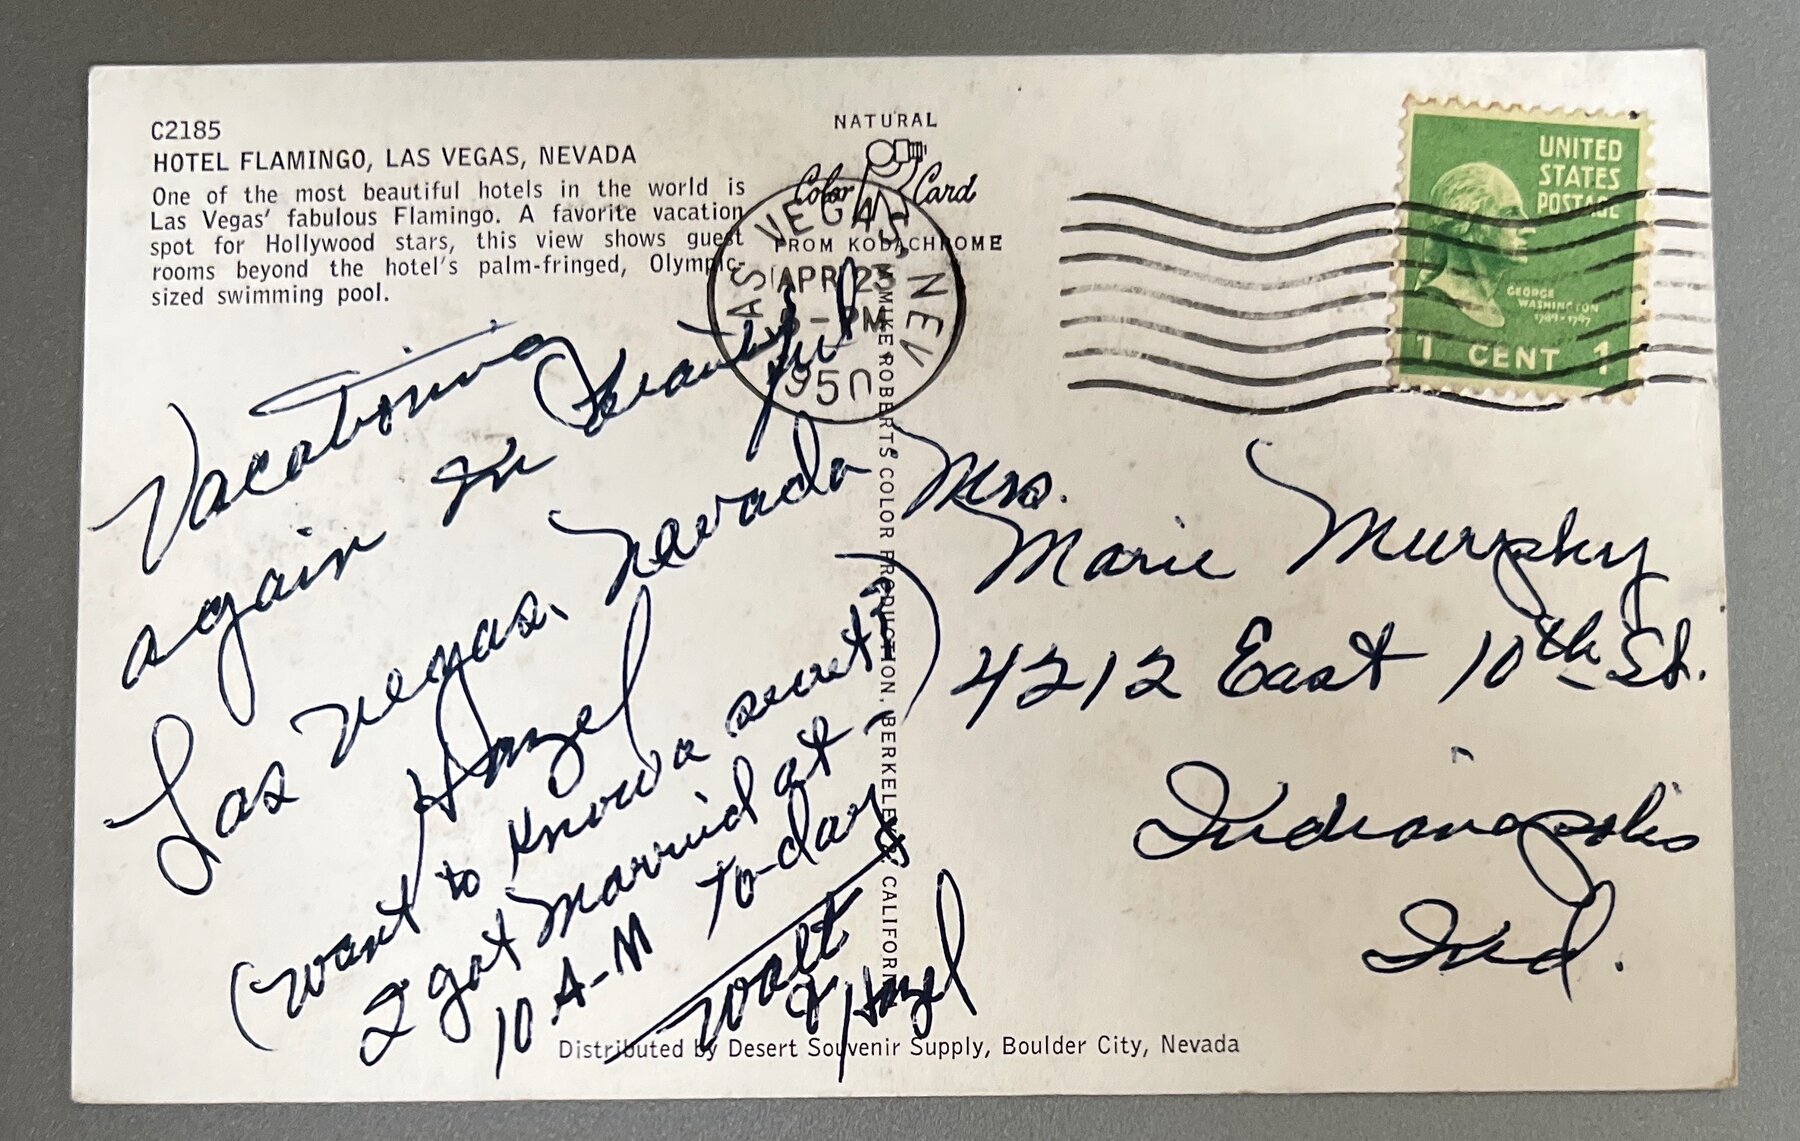 C2185
HOTEL FLAMINGO, LAS VEGAS, NEVADA
One of the most beautiful hotels in the world is
Las Vegas' fabulous Flamingo. A favorite vacation
spot for Hollywood stars, this view shows guest
rooms beyond the hotel's palm-fringed, Olympic-
sized swimming pool.
NATURAL
Color Card
FROM KODACHROME
LAS VEGAS, NEV
APR 23
PM
1950
UNITED
STATES
POSTAGE
GEORGE
WASHINGTON
1789-1797
1 CENT 1
Vacationing
again in Beautiful
Las Vegas, Nevada
Hazel
(Want to know a secret?
I got married at
10 A-M To-day)
Walt
& Hazel
MIKE ROBERTS COLOR PRODUCTION, BERKELEY, CALIFORNIA
Mrs.
Marie Murphy
4212 East 10th St.
Indianapolis
Ind.
Distributed by Desert Souvenir Supply, Boulder City, Nevada